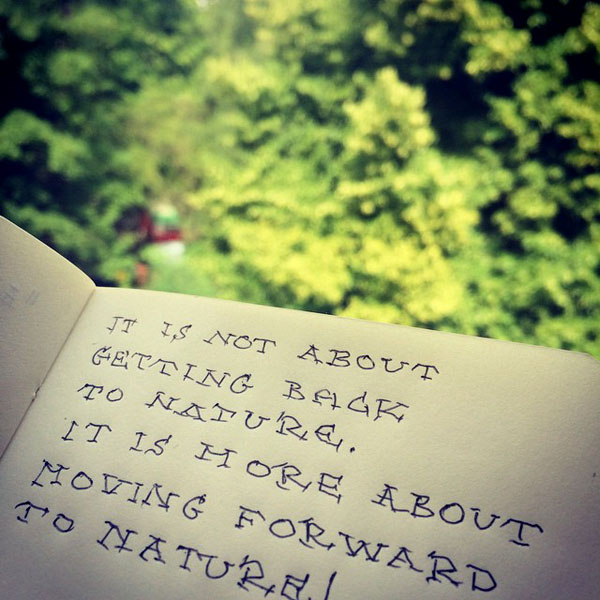 IT IS NOT ABOUT
GETTING BACK
TO NATURE.
IT IS MORE ABOUT
MOVING FORWARD
TO NATURE!